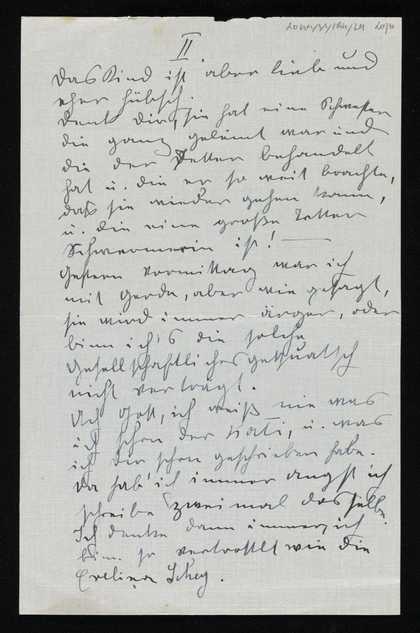 II
Das Kind ist aber lieb und
eher hübsch.
Denk dir, sie hat eine Schwester
die ganz gelämt war und
die der Vetter behandelt
hat u. die er so weit brachte,
daß sie wieder gehen kann,
u. die eine große Vetter
Schwärmerin ist! —
Gestern Vormittag war ich
mit Gerda, aber wie gesagt,
sie wird immer ärger, oder
bin ich's die solche
Gesellschaftlichesgequatsch
nicht vertragt.
Ach Gott, ich weiß nie was
ich schon der Kati, u. was
ich dir schon geschrieben habe.
Da hab' ich immer angst ich
schreibe zweimal dasselbe.
Ich denke dann immer, ich
bin so vertrottlt wie die
Evelina Schey.